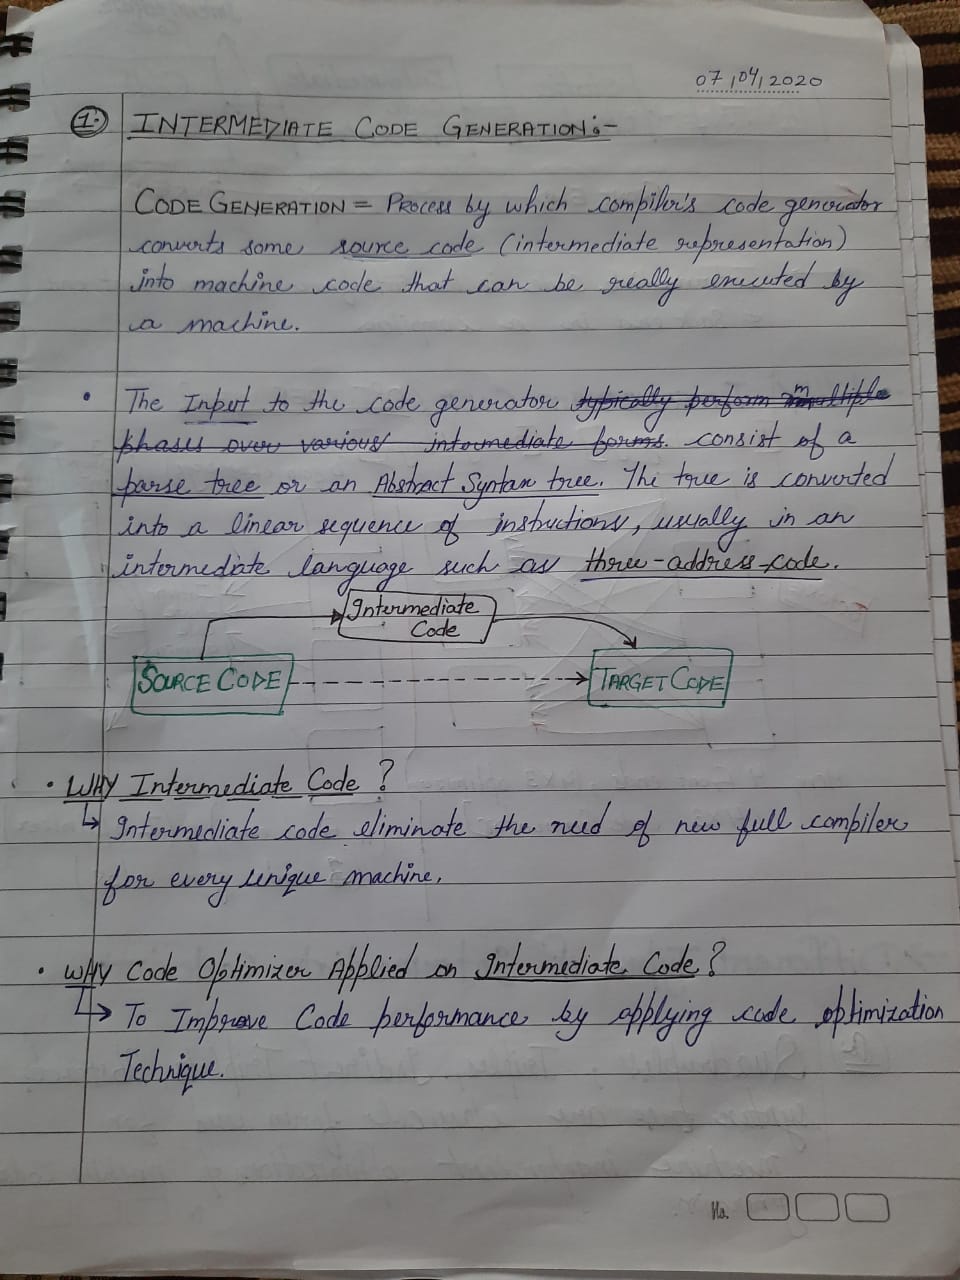 07/04/2020
1. INTERMEDIATE CODE GENERATION:-
CODE GENERATION = Process by which compiler's code generator
converts some source code (intermediate representation)
into machine code that can be really executed by
a machine.
• The Input to the code generator typically perform multiple
phases over various intermediate forms. consist of a
parse tree or an Abstract Syntax tree. The tree is converted
into a linear sequence of instructions, usually in an
intermediate language such as three-address-code.
Intermediate
Code
SOURCE CODE
TARGET CODE
• WHY Intermediate Code?
↳ Intermediate code eliminate the need of new full compiler
for every unique machine.
• WHY Code Optimizer Applied on Intermediate Code?
↳ To Improve Code performance by applying code optimization
Technique.
No.